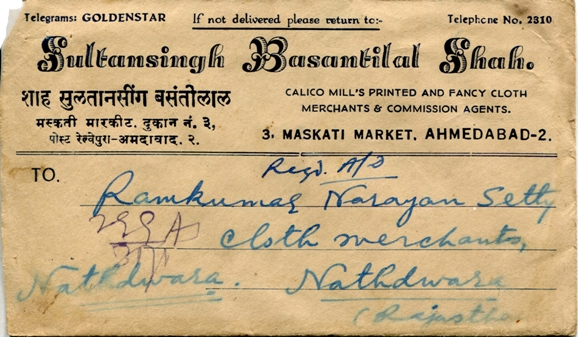 Telegrams: GOLDENSTAR If not delivered please return to:- Telephone No. 2310
Sultansingh Basantilal Shah.
शाह सुलतानसींग बसंतीलाल
मस्कती मारकीट, दुकान नं. ३,
पोस्ट रेल्वेपुरा-अमदावाद. २.
CALICO MILL'S PRINTED AND FANCY CLOTH
MERCHANTS & COMMISSION AGENTS.
3, MASKATI MARKET, AHMEDABAD-2.
Regd. A/D
TO. Ramkumar Narayan Setty
cloth merchants,
Nathdwara. Nathdwara